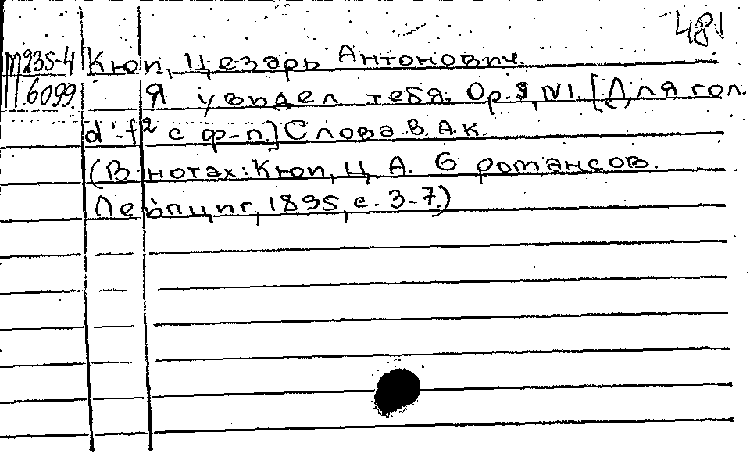 481
М235-4 Кюи, Цезарь Антонович.
6099 Я увидел тебя. Op. 9, №1. [Для гол.
d'-f² с ф-п.] Слова В.А.К.
(В нотах: Кюи, Ц. А. 6 романсов.
Лейпциг, 1895, с. 3-7.)